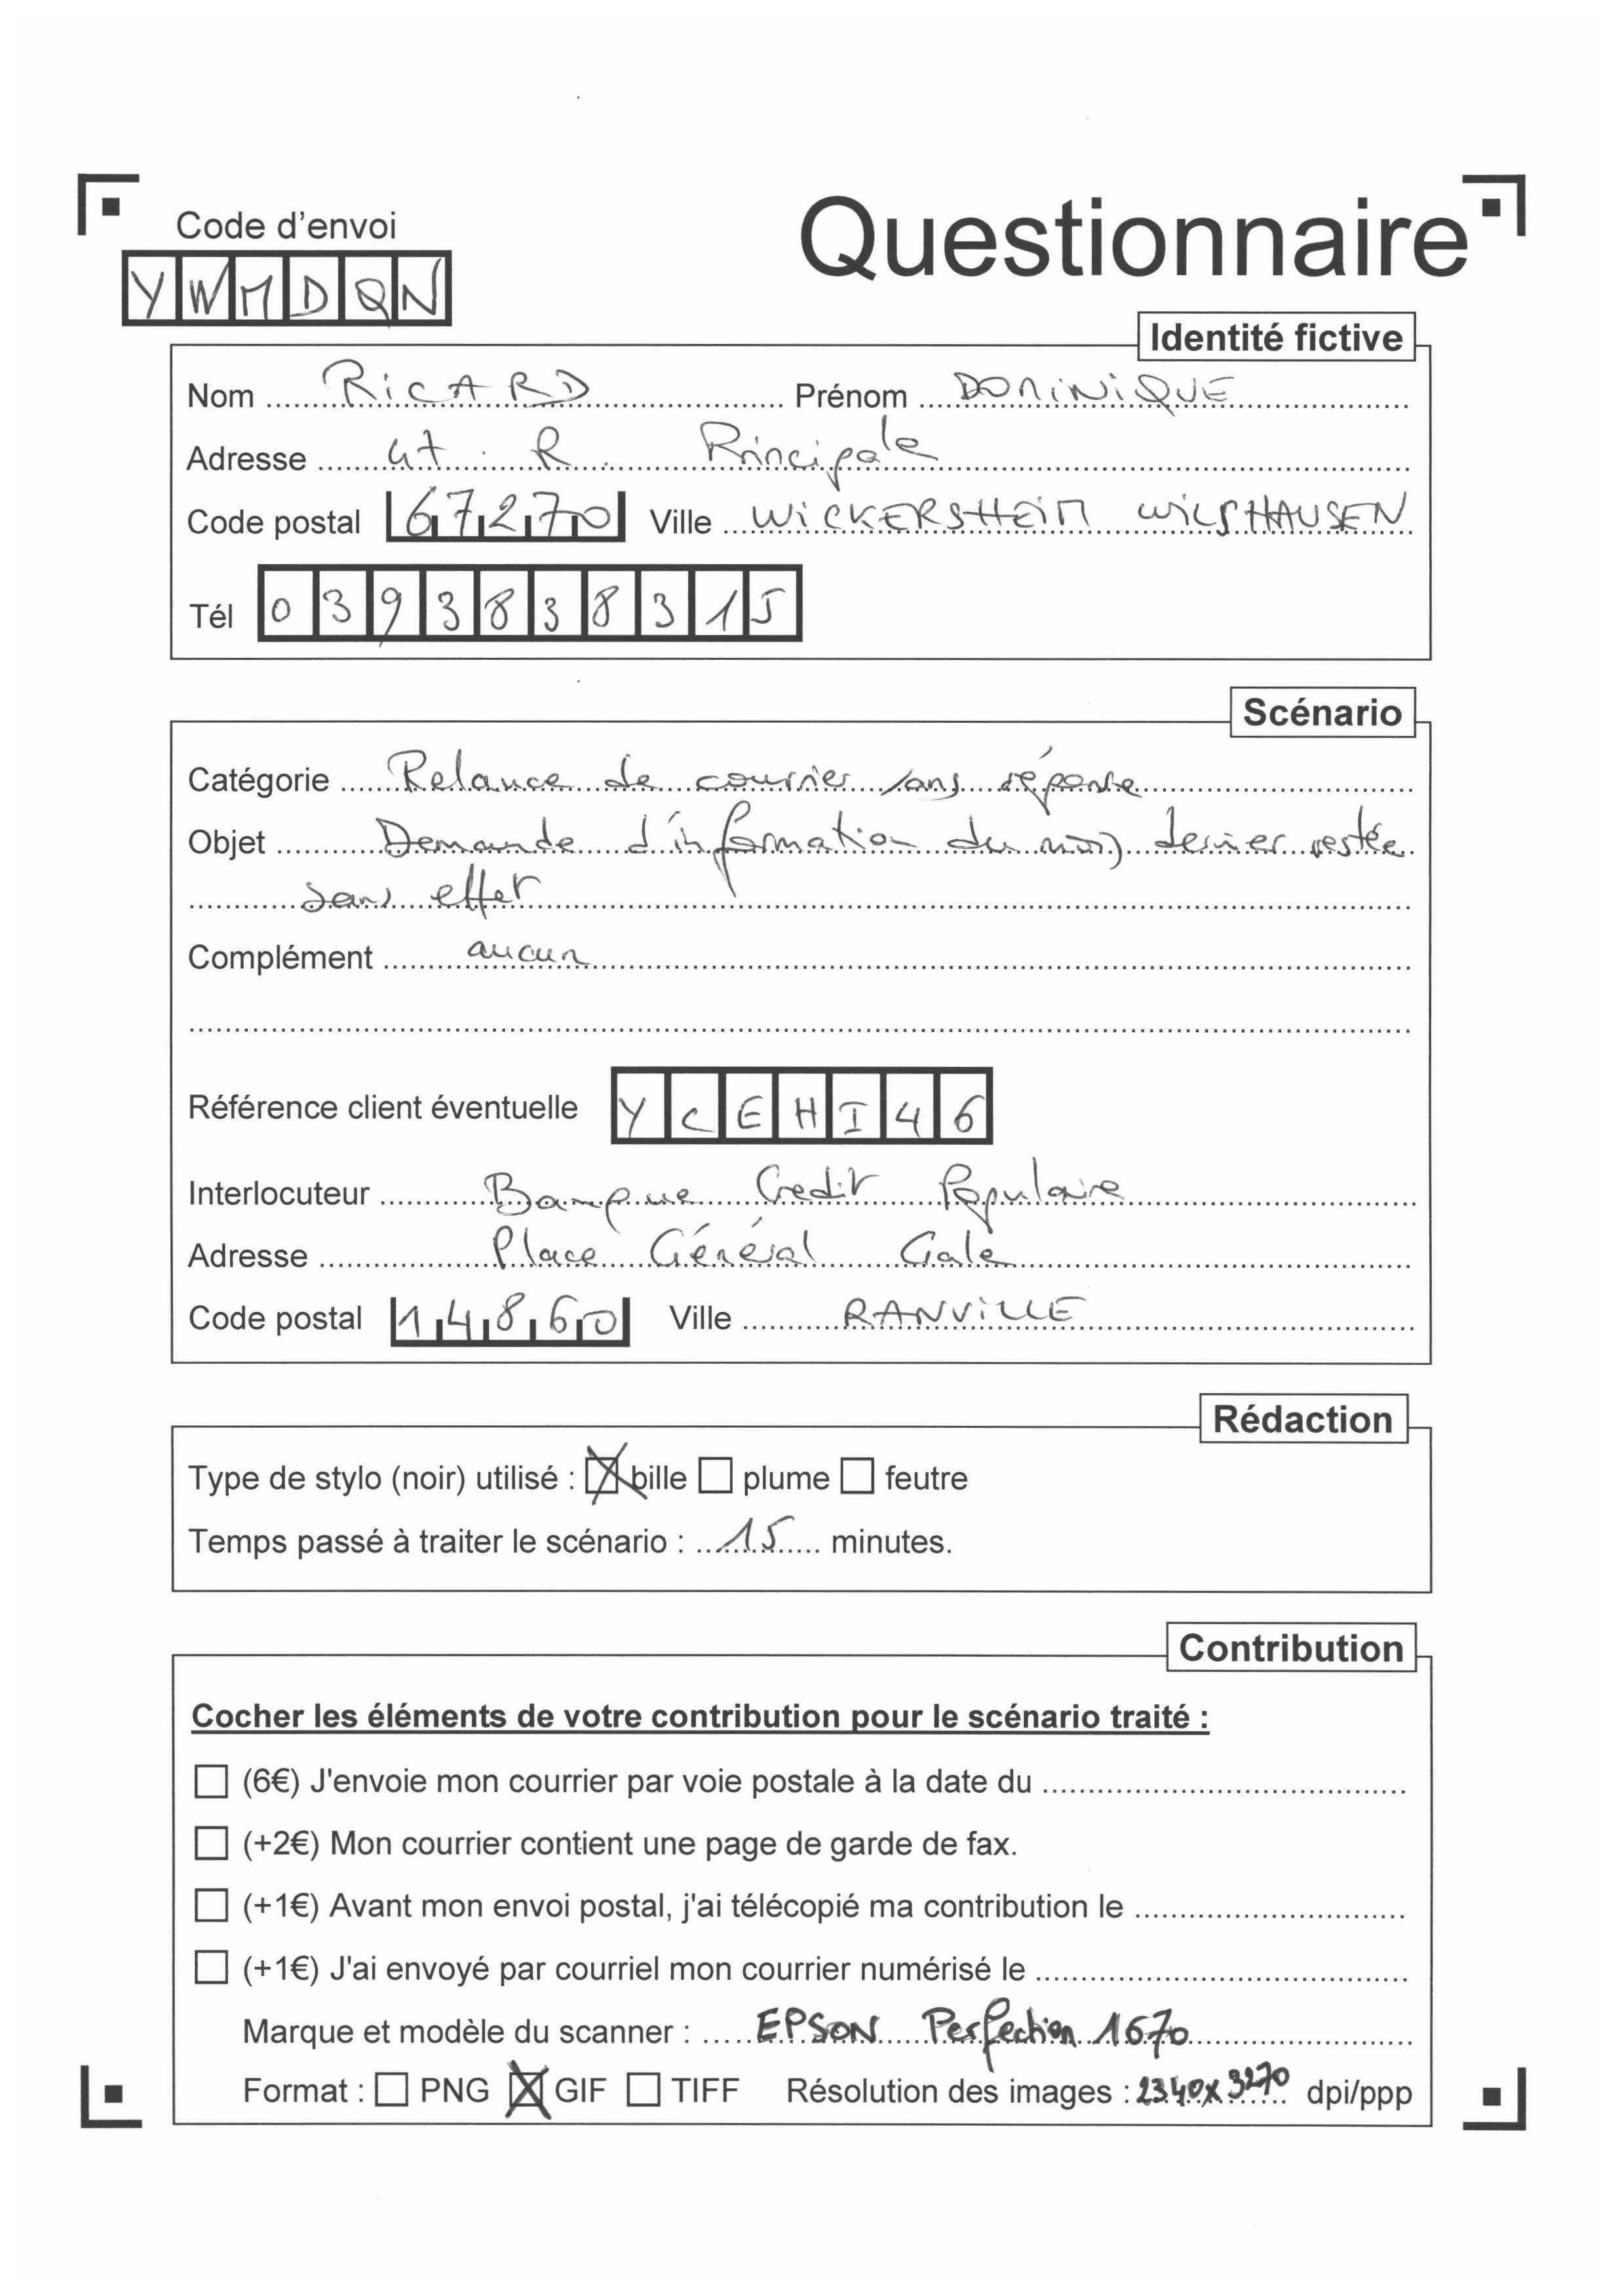 Code d'envoi
Questionnaire
YWMDQN
Identité fictive
Nom RiCARD Prénom DOMiNiQUE
Adresse R Principale
Code postal 67270 Ville WiCKERSHEiM WiLSHAUSEN
Tél 0393838315
Scénario
Catégorie Relance de courrier sans réponse
Objet Demande d'information du mois dernier restée
sans effet
Complément aucun
Référence client éventuelle YCEHI46
Interlocuteur Banque Credit Populaire
Adresse Place Général Gale
Code postal 14860 Ville RANViLLE
Rédaction
Type de stylo (noir) utilisé : bille plume feutre
Temps passé à traiter le scénario : 15 minutes.
Contribution
Cocher les éléments de votre contribution pour le scénario traité :
(6€) J'envoie mon courrier par voie postale à la date du
(+2€) Mon courrier contient une page de garde de fax.
(+1€) Avant mon envoi postal, j'ai télécopié ma contribution le
(+1€) J'ai envoyé par courriel mon courrier numérisé le
Marque et modèle du scanner : EPSON Perfection 1670
Format : PNG GIF TIFF Résolution des images : 2340x3270 dpi/ppp